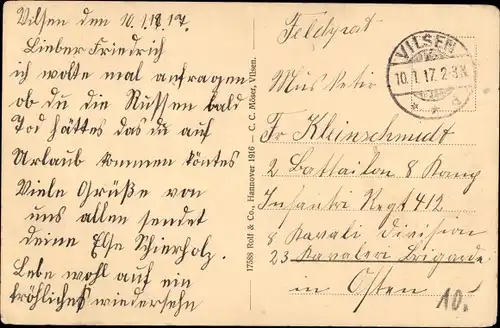 Vilsen den 10.1.1917.
Lieber Friedrich
ich wolte mal anfragen
ob du die Russen bald
Tod hättes das du auf
Urlaub kommen köntes
Viele Grüße von
uns allen sendet
deine Else Schierholz.
Lebe wohl auf ein
fröhliches wiedersehn
17588 Roll & Co., Hannover 1916 — C. C. Möser, Vilsen.
Feldpost
VILSEN
10.1.17. 2-3 N
Musketir
Fr Kleinschmidt
2 Battailon 8 Komp
Infantri Regt 412
8 Kavali Division
23 Kavaleri Brigade
in Osten
10.